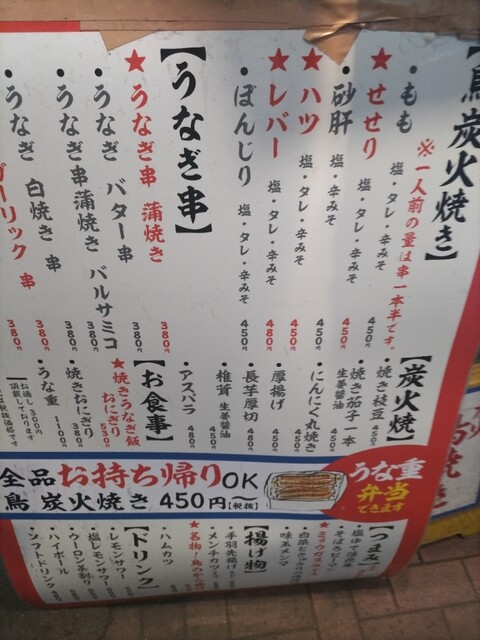 【鳥炭火焼き】
※一人前の量は串一本半です。
・もも 塩・タレ・辛みそ 450円
★せせり 塩・タレ・辛みそ 450円
・砂肝 塩・辛みそ 450円
★ハツ 塩・タレ・辛みそ 450円
★レバー 塩・タレ・辛みそ 480円
・ぼんじり 塩・タレ・辛みそ 450円
【うなぎ串】
★うなぎ串 蒲焼き 380円
・うなぎ バター串 380円
・うなぎ串蒲焼き バルサミコ 380円
・うなぎ 白焼き 串 380円
ガーリック 串 380円
【炭火焼】
・焼き枝豆 450円
・焼き茄子一本 生姜醤油
・にんにく丸焼き
・厚揚げ 450円
・長芋厚切 480円
・椎茸 生姜醤油 450円
・アスパラ 480円
【お食事】
★焼きうなぎ飯おにぎり 530円
・焼きおにぎり 380円
・うな重 1100円
お通し300円
頂戴しております
全品お持ち帰りOK
鳥 炭火焼き 450円〜(税抜)
うな重
弁当
できます
【つまみ】
・味玉メンマ
【揚げ物】
・手羽先揚げ
・メンチカツ
・ハムカツ
【ドリンク】
・レモンサワー
・塩レモンサワー
・ウーロン茶割り
・ハイボール
・ソフトドリンク